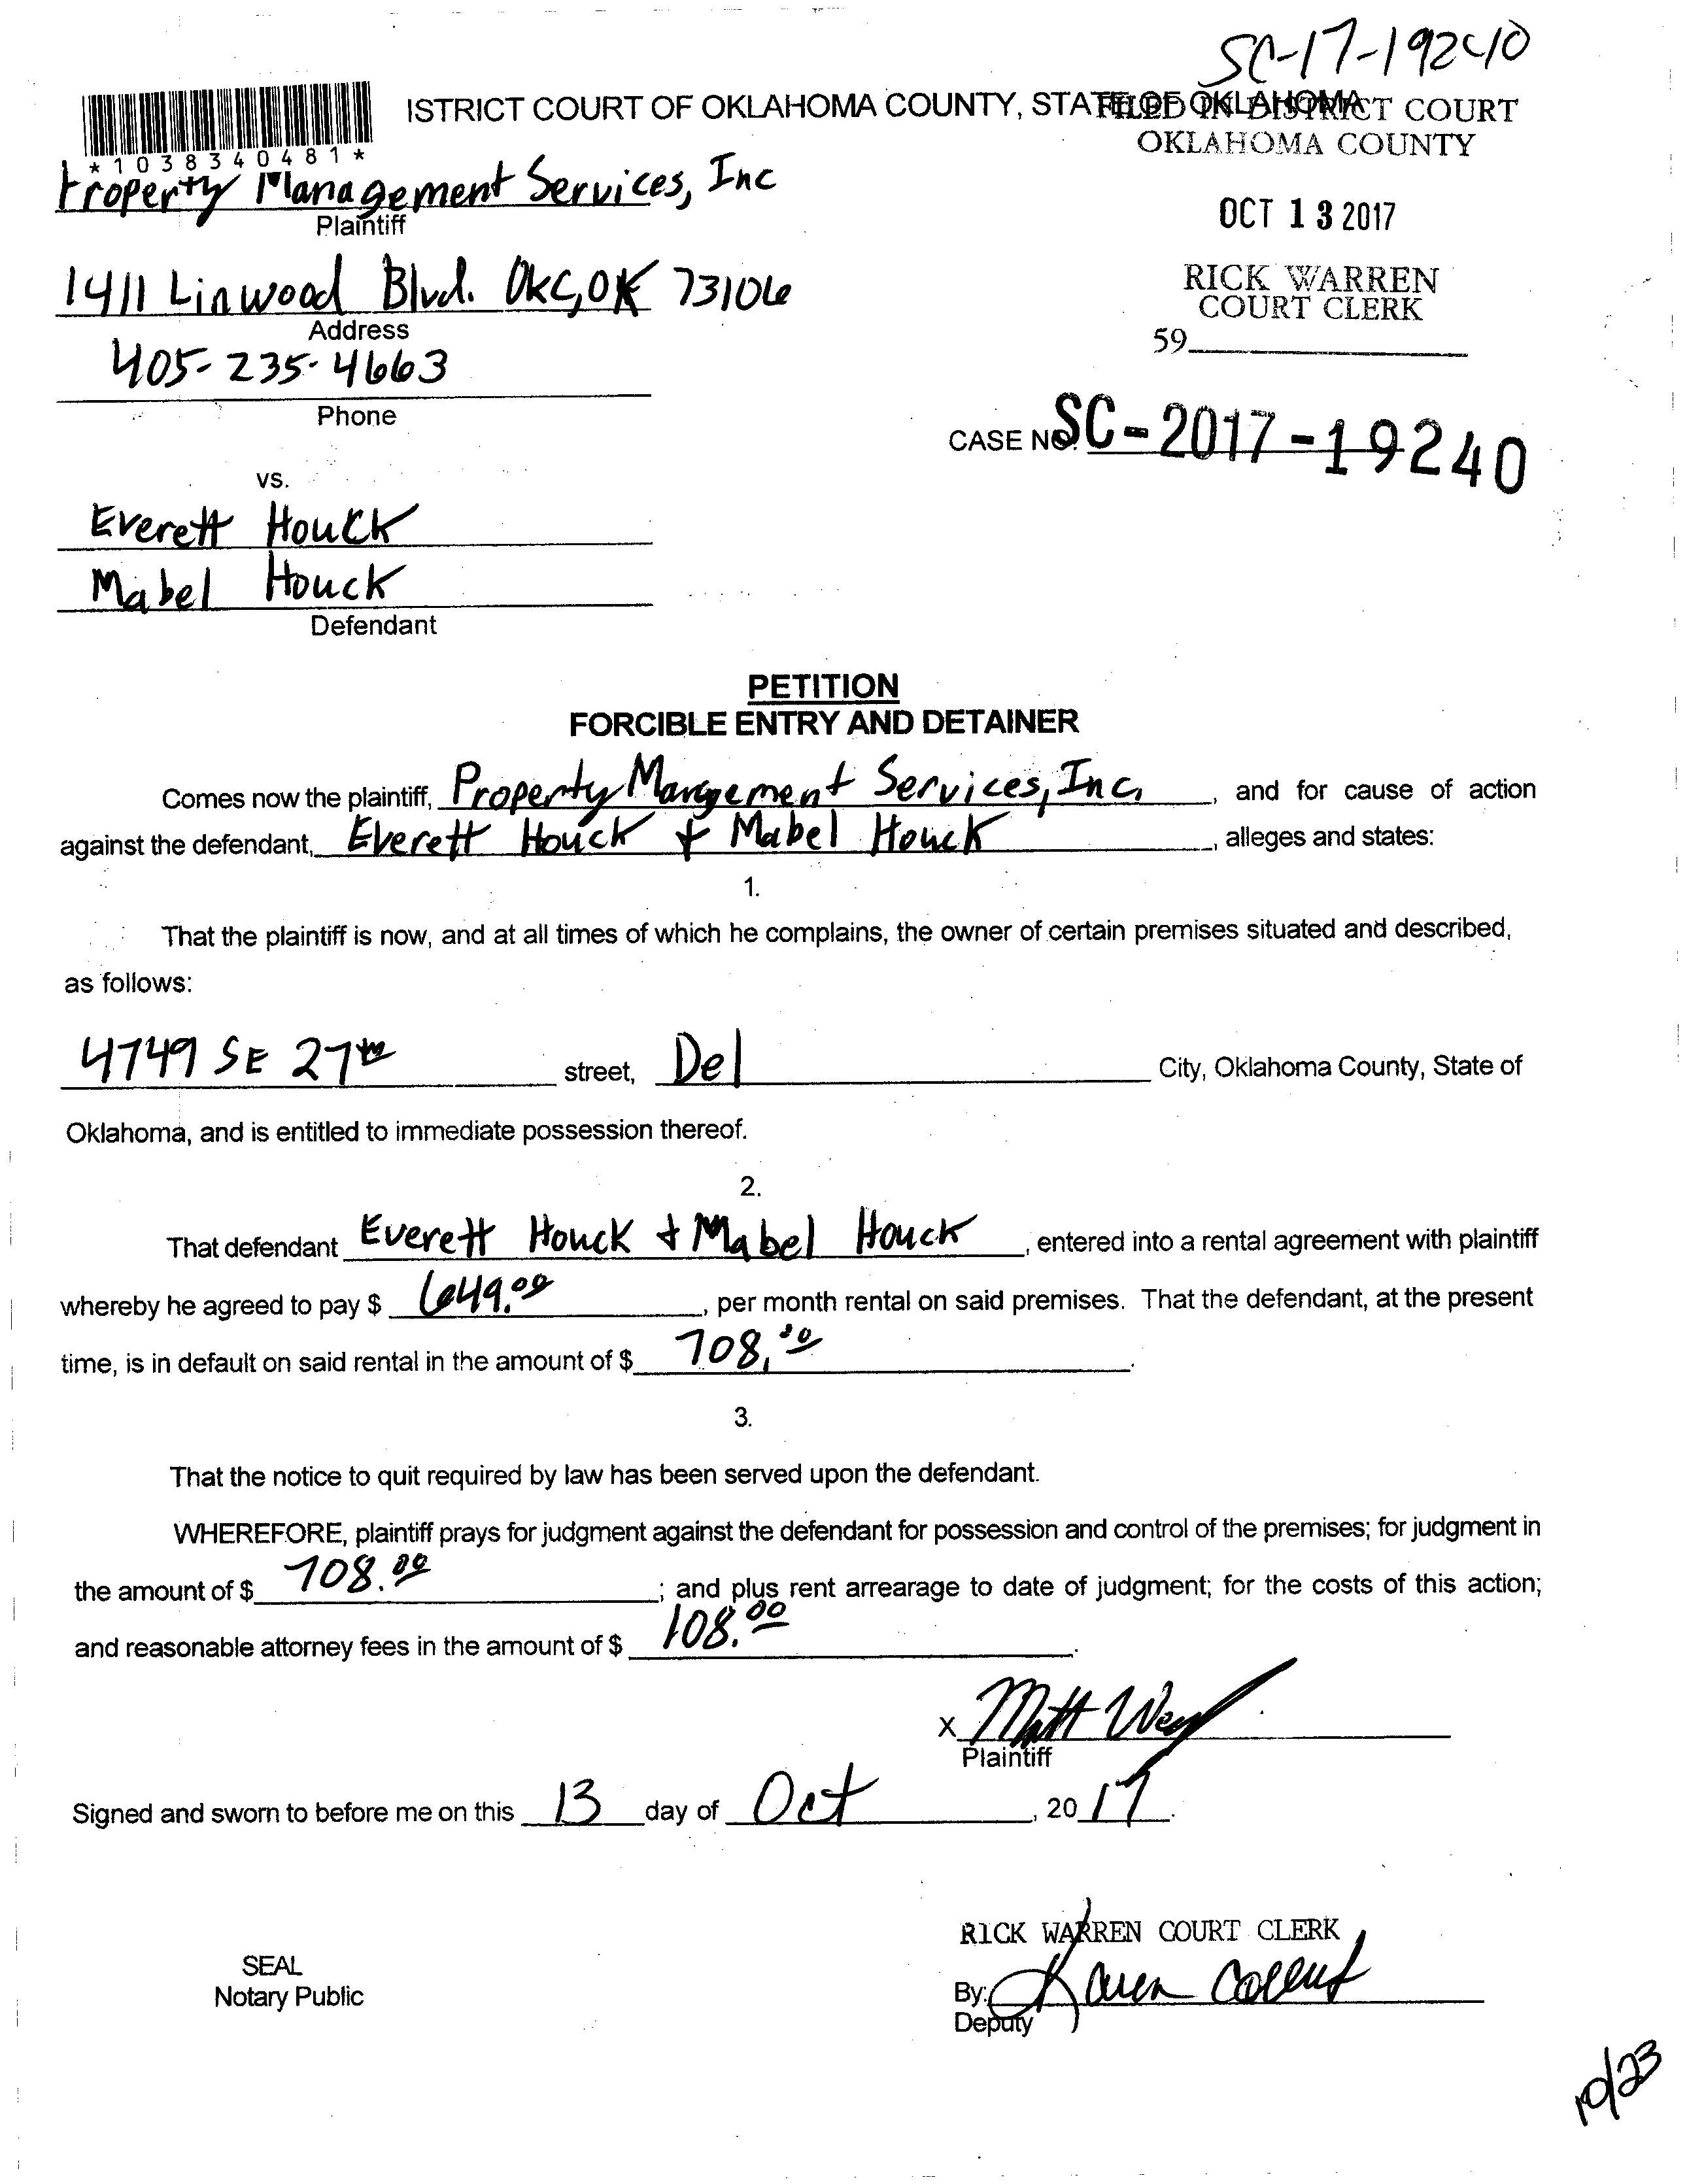 SC-17-19240
ISTRICT COURT OF OKLAHOMA COUNTY, STATE OF OKLAHOMA
FILED IN DISTRICT COURT
OKLAHOMA COUNTY
*1038340481*
Property Management Services, Inc
Plaintiff
OCT 13 2017
1411 Linwood Blvd. OKC, OK 73106
Address
RICK WARREN
COURT CLERK
59
405-235-4663
Phone
CASE NO. SC-2017-19240
vs.
Everett Houck
Mabel Houck
Defendant
PETITION
FORCIBLE ENTRY AND DETAINER
Comes now the plaintiff, Property Management Services, Inc, , and for cause of action
against the defendant, Everett Houck + Mabel Houck , alleges and states:
1.
That the plaintiff is now, and at all times of which he complains, the owner of certain premises situated and described,
as follows:
4749 SE 27th street, Del City, Oklahoma County, State of
Oklahoma, and is entitled to immediate possession thereof.
2.
That defendant Everett Houck + Mabel Houck , entered into a rental agreement with plaintiff
whereby he agreed to pay $ 649.00 , per month rental on said premises. That the defendant, at the present
time, is in default on said rental in the amount of $ 708.00 .
3.
That the notice to quit required by law has been served upon the defendant.
WHEREFORE, plaintiff prays for judgment against the defendant for possession and control of the premises; for judgment in
the amount of $ 708.00 ; and plus rent arrearage to date of judgment; for the costs of this action;
and reasonable attorney fees in the amount of $ 108.00 .
X Matt
Plaintiff
Signed and sworn to before me on this 13 day of Oct , 20 17 .
RICK WARREN COURT CLERK
SEAL
Notary Public
By: Karen
Deputy
10/23